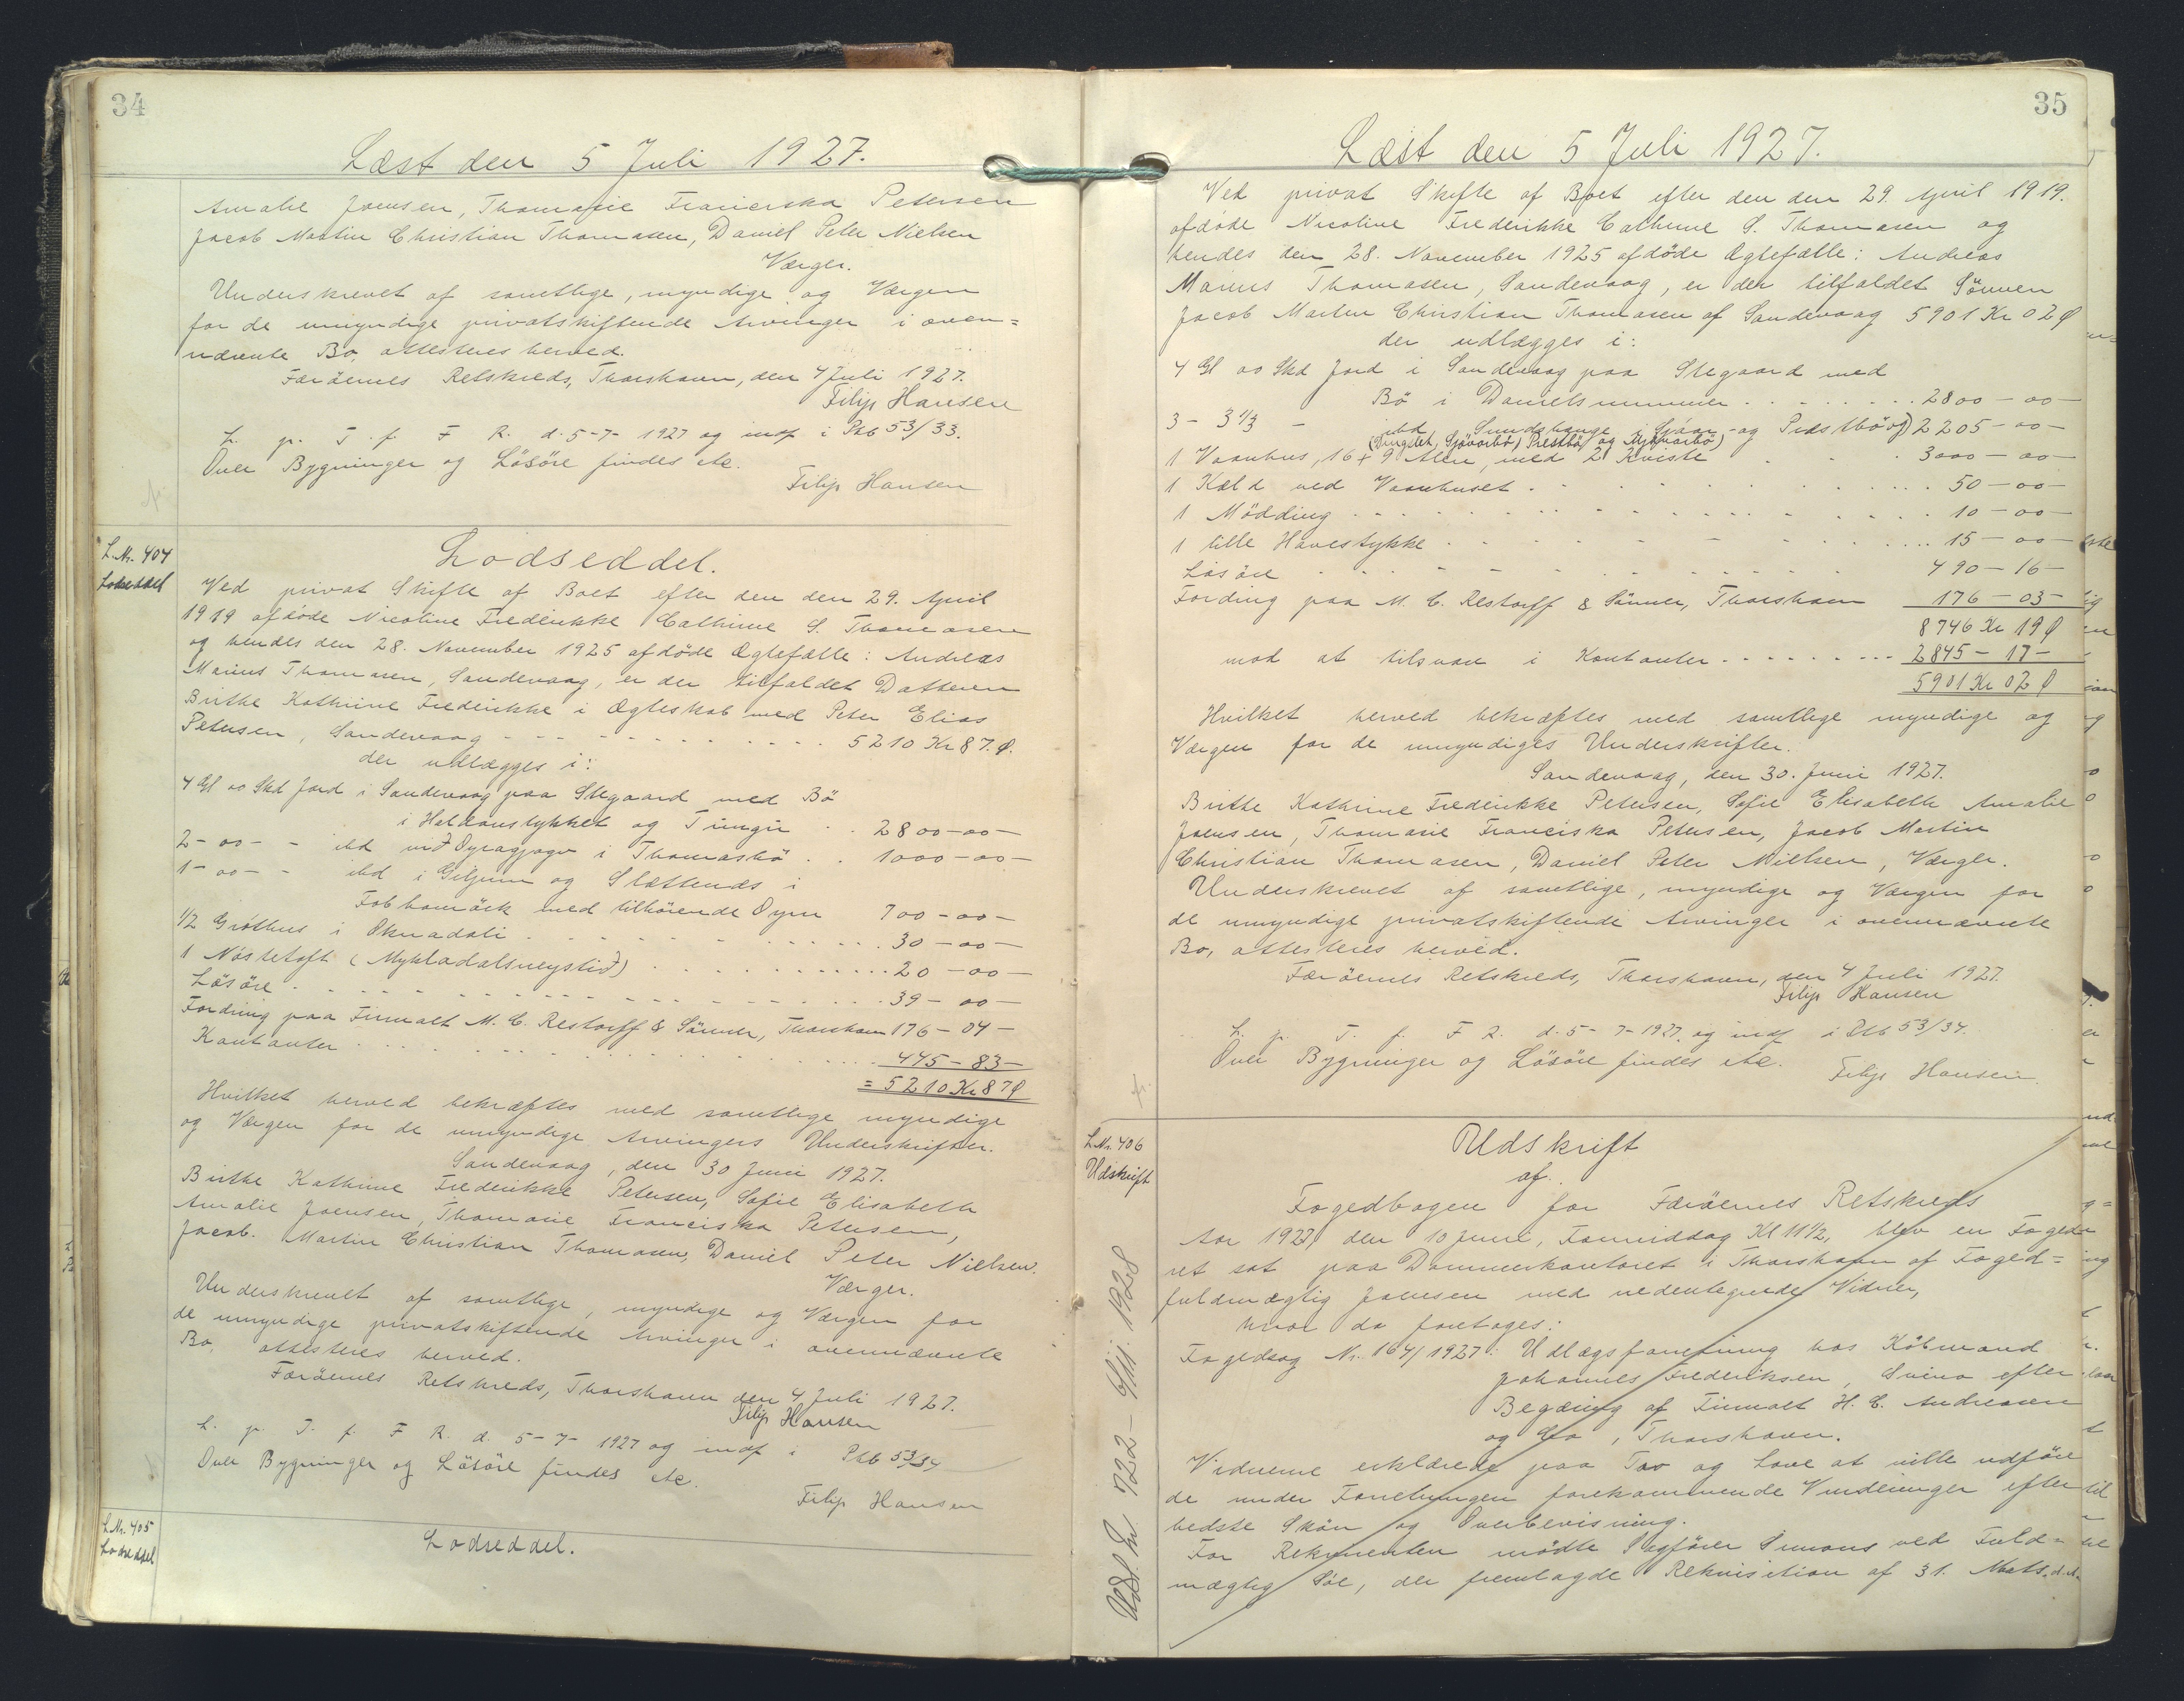 34
Læst den 5 Juli 1927.
Amalie Joensen, Thomasie Franciska Petersen
Jacob Martin Christian Thomasen, Daniel Peter Nielsen
Værger.
Underskrevet af samtlige, myndige og Værgen
for de umyndige privatskiftende Arvinger i oven=
nævnte Bo, attesteres herved.
Færöernes Retskreds, Thorshavn, den 4 Juli 1927.
Filip Hansen
L. p. T. f. F R. d. 5-7-1927 og indf i Pkb 53/33.
Over Bygninger og Lösöre findes etc.
Filip Hansen
L.Nr. 404
Lodseddel
Lodseddel.
Ved privat Skifte af Boet efter den den 29. April
1919 afdöde Nicoline Frederikke Cathrine S. Thomasen
og hendes den 28. November 1925 afdöde Ægtefælle: Andreas
Marius Thomasen, Sandevaag, er der tilfaldet Datteren
Birthe Kathrine Frederikke i Ægteskab med Peter Elias
Petersen, Sandevaag - - - - - 5210 Kr 87. Ø.
der udlægges i:
4 Gl 00 Skd Jord i Sandevaag paa Stegaard med Bö
i Haldanstykket og Tungu . . 2800-00-
2- 00- - ibd við Oyragjogv i Thomasbö . . 1000-00-
1- 00- - ibd i Giljum og Slættenes i
med tilhörende Oyru 700-00-
1/2 Gróthus i . . . 30-00-
1 Nöstetoft (Mykladalsneystið) . . . 20-00-
Lösöre . . . 39-00-
Fordring paa Firmaet M. C. Restorff & Sönner, Thorshavn 176-04-
Kontanter . . . 445-83-
= 5210 Kr 87 Ø
Hvilket herved bekræftes med samtlige myndige
og Værgen for de umyndige Arvingers Underskrifter.
Sandevaag, den 30 Juni 1927.
Birthe Kathrine Frederikke Petersen, Sofie Elisabeth
Amalie Joensen, Thomasie Franciska Petersen,
Jacob. Martin Christian Thomasen, Daniel Peter Nielsen.
Værger.
Underskrevet af samtlige, myndige og Værgen for
de umyndige privatskiftende Arvinger i ovennævnte
Bo, attesteres herved.
Færöernes Retskreds, Thorshavn den 4 Juli 1927.
Filip Hansen
L. p. T. f. F R. d. 5-7-1927 og indf i Pkb 53/34
Over Bygninger og Lösöre findes etc.
Filip Hansen
L.Nr. 405
Lodseddel
Lodseddel.
35
Læst den 5 Juli 1927.
Ved privat Skifte af Boet efter den den 29. April 1919.
afdöde Nicoline Frederikke Cathrine S. Thomasen og
hendes den 28. November 1925 afdöde Ægtefælle: Andreas
Marius Thomasen, Sandevaag, er der tilfaldet Sönnen
Jacob Martin Christian Thomasen af Sandevaag 5901 Kr 02 Ø
der udlægges i:
4 Gl 00 Skd Jord i Sandevaag paa Stegaard med
Bö i Danielsnummer . . . 2800-00-
3- 3 1/3 - ibd i og Præstbö og 2205-00-
( Præstbö og )
1 Vaanhus, 16 x 9 Alen, med 2 Kviste . . . 3000-00-
1 Kæld ved Vaanhuset . . . 50-00-
1 Mödding . . . 10-00-
1 lille Havestykke . . . 15-00-
Lösöre . . . 490-16-
Fordring paa M. C. Restorff & Sönner, Thorshavn 176-03-
8746 Kr 19 Ø
mod at tilsvare i Kontanter . . . 2845-17-
5901 Kr 02 Ø
Hvilket herved bekræftes med samtlige myndige og
Værgen for de umyndiges Underskrifter.
Sandevaag, den 30. Juni 1927.
Birthe Kathrine Frederikke Petersen, Sofie Elisabeth Amalie
Joensen, Thomasie Franciska Petersen, Jacob Martin
Christian Thomasen, Daniel Peter Nielsen, Værger.
Underskrevet af samtlige, myndige og Værgen for
de umyndige privatskiftende Arvinger i ovennævnte
Bo, attesteres herved.
Færöernes Retskreds, Thorshavn, den 4 Juli 1927.
Filip Hansen
L. p. T. f. F R. d. 5-7-1927. og indf i Pkb 53/34.
Over Bygninger og Lösöre findes etc.
Filip Hansen.
L.Nr. 406
Udskrift
Udskrift
af
Fogedbogen for Færöernes Retskreds
Aar 1927, den 10 Juni, Formiddag Kl 11 1/2, blev en Foged-
ret sat paa Dommerkontoret i Thorshavn af Foged=
fuldmægtig Joensen med nedentegnede Vidner,
hvor da foretoges:
Fogedsag Nr. 164/1927: Udlægsforretning hos Köbmand
Johannes Frederiksen, Svinö efter
Begæring af Firmaet H. C. Andreasen
og Co, Thorshavn.
Vidnerne erklærede paa Tro og Love at ville udföre
de under Forretningen forekommende Vurderinger efter
bedste Skön og Overbevisning.
For Rekvirenten mödte Sagförer Simons ved Fuld=
mægtig , der fremlagde Rekvisition af 31. Marts. d. A.
Udsl. Nr. 722 - 6/11. 1928